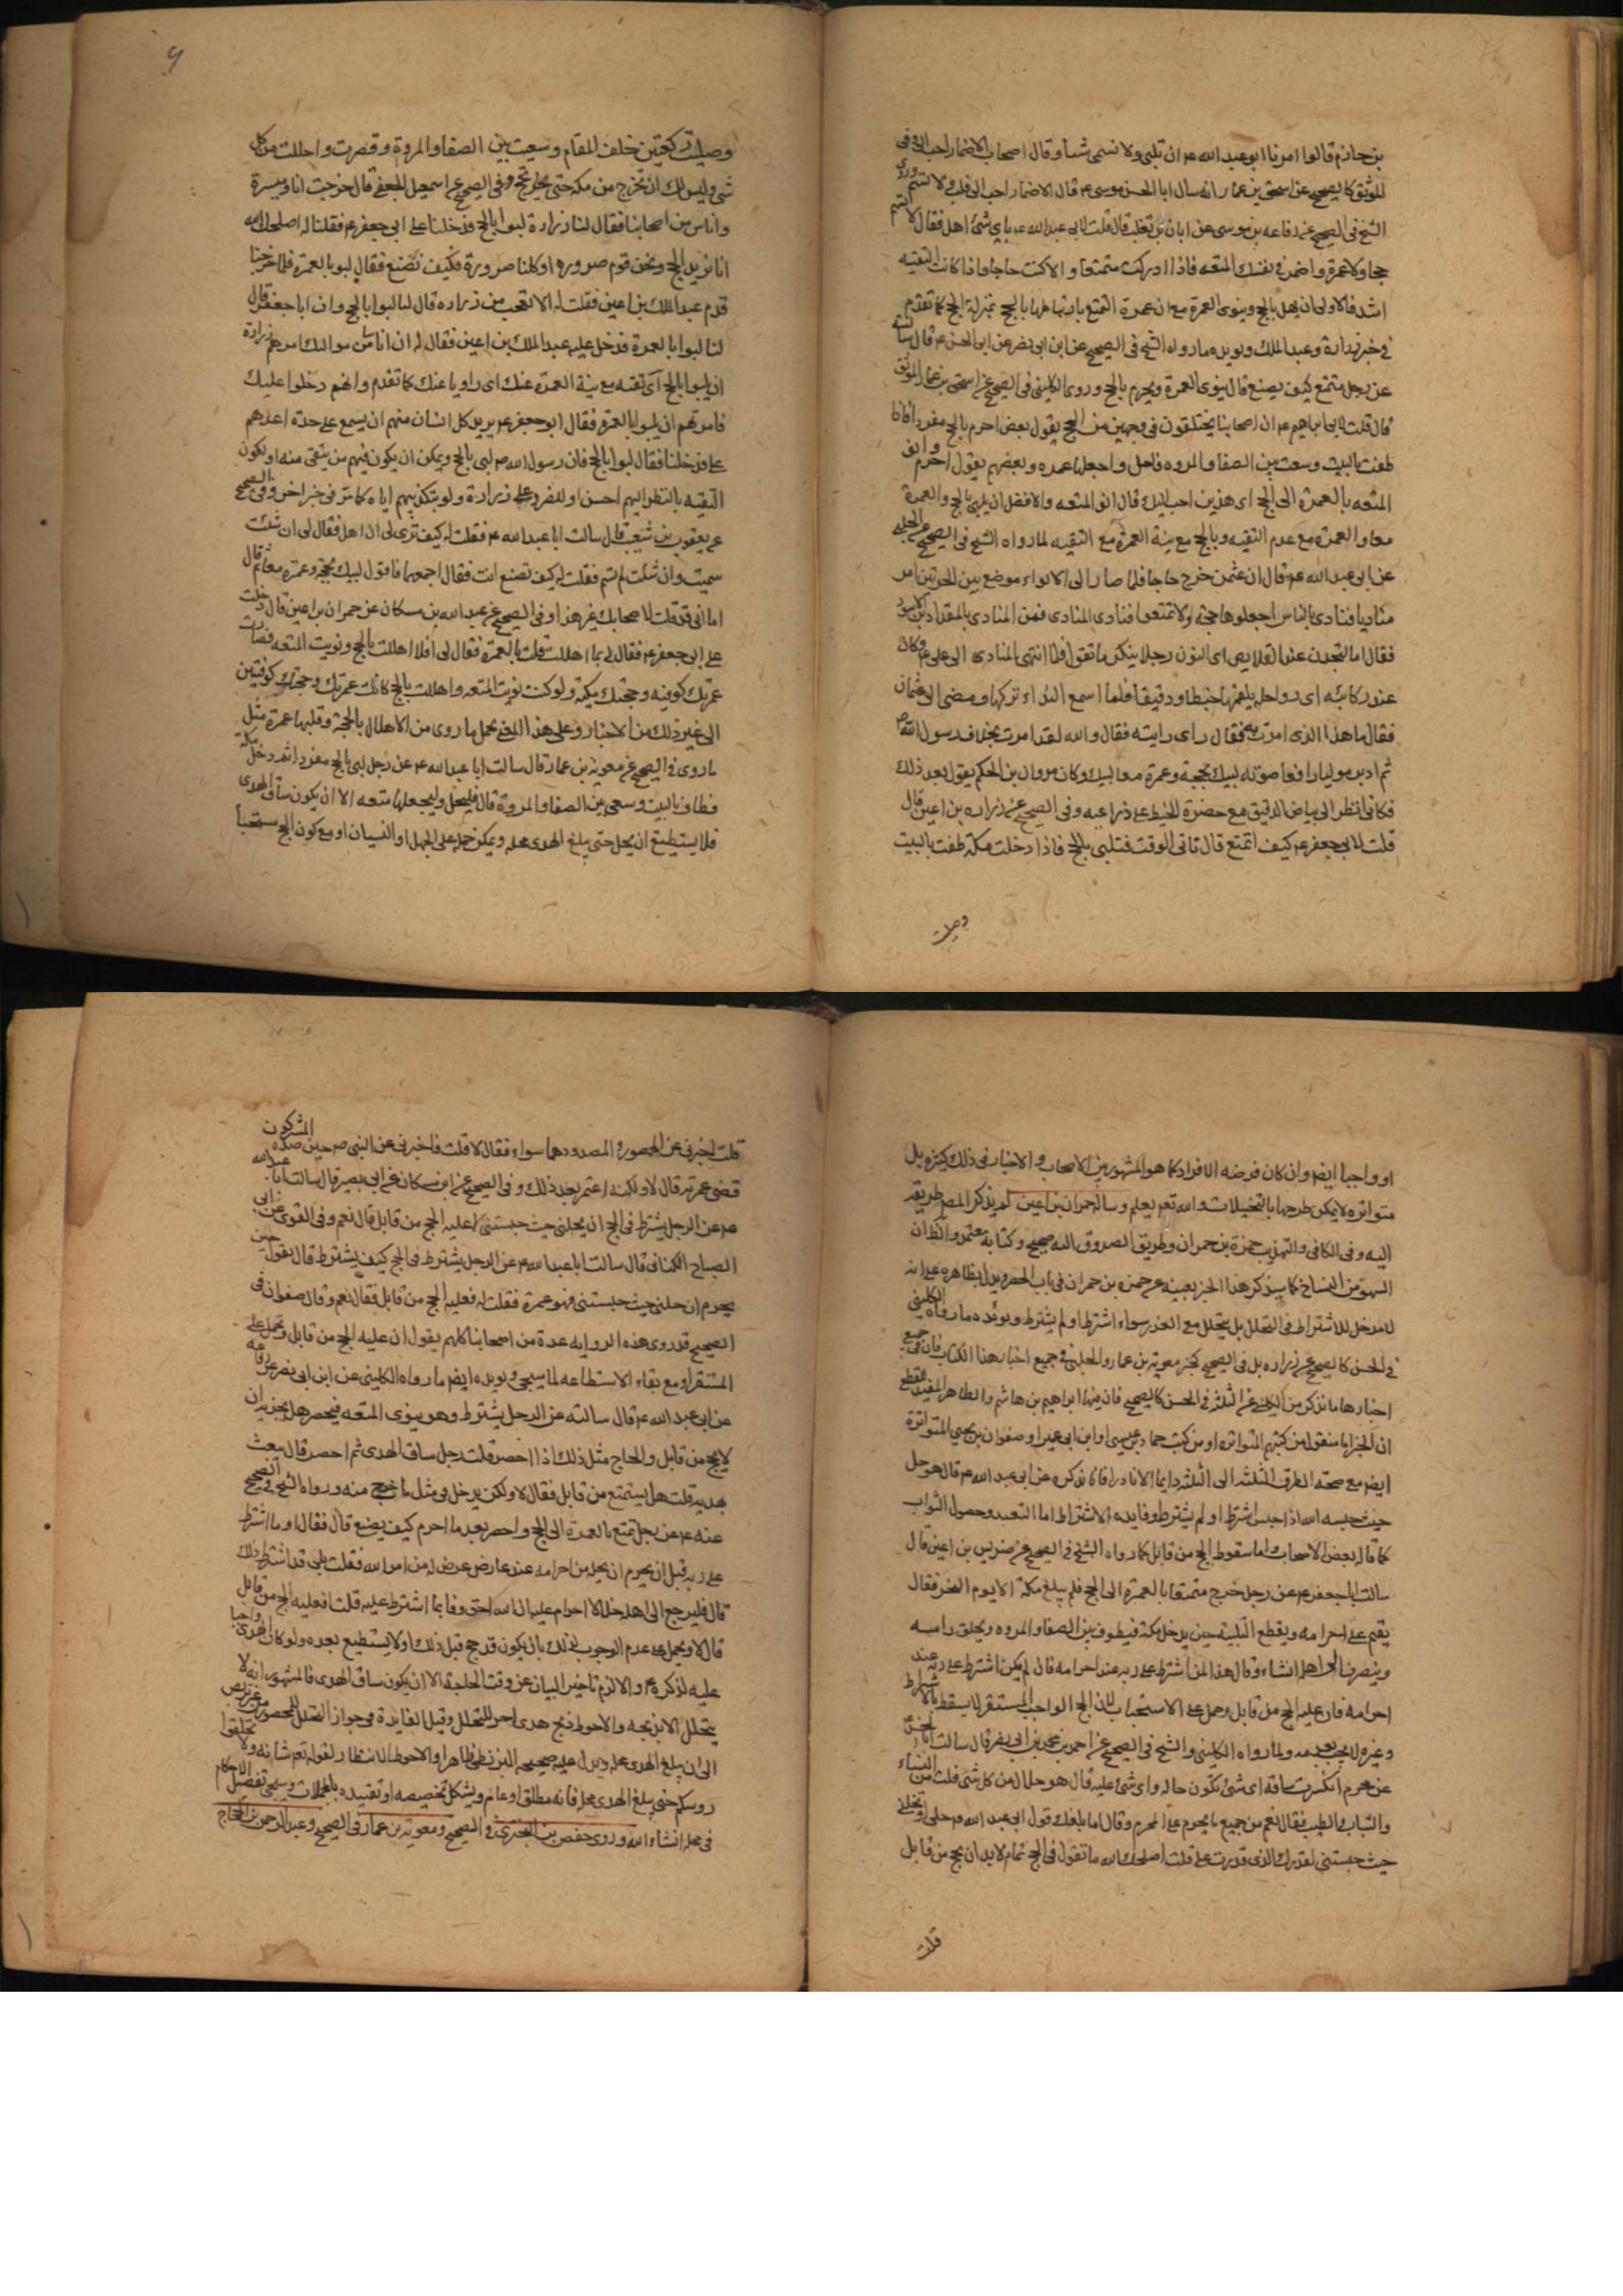 بن حازم قالوا امرنا ابو عبد الله ع ان نلبي ولا نسمي شيئا وقال اصحاب الاضمار احب الي وفي
الموثق كالصحيح عن اسحق بن عمار انه سال ابا الحسن موسى ع قال الاضمار احب الي فلب ولا تسم وروى
الشيخ في الصحيح عن رفاعه بن موسى عن ابان بن تغلب قال قلت لابي عبد الله ع باي شئ اهل فقال لا تسم
حجا ولا عمرة واضمر في نفسك المتعه فاذا ادركت متمتعا والا كنت حاجا فاذا كانت التقيه
اشد فالاولى ان يهل بالحج وينوى العمرة مع ان عمرة التمتع بارتباطها بالحج بمنزلة الحج كما تقدم
في خبر زرارة وعبد الملك ويويده ما رواه الشيخ في الصحيح عن ابن ابي نصر عن ابي الحسن ع قال سالته
عن رجل متمتع كيف يصنع قال ينوى العمرة ويحرم بالحج وروى الكليني في الصحيح عن اسحق بن عمار الموثق
قال قلت لابي ابراهيم ع ان اصحابنا يختلفون في وجهين من الحج يقول بعض احرم بالحج مفردا فاذا
طفت بالبيت وسعيت بين الصفا والمروه فاحل واجعلها عمره وبعضهم يقول احرم وانو
المتعه بالعمرة الى الحج اى هذين احب اليك قال انو المتعه والافضل ان يلبي بالحج والعمرة
معا والعمرة مع عدم التقيه وبالحج مع نية العمرة مع التقيه لما رواه الشيخ في الصحيح عن الحلبي
عن ابي عبد الله ع قال ان عثمن خرج حاجا فلما صار الى الابواء موضع بين الحرمين امر
مناديا فنادى بالناس اجعلوها حجة ولا تمتعوا فنادى المنادى فمر المنادى بالمقداد بن الاسود
فقال اما لتجدن عند القلايص اى النوق رجلا ينكر ما تقول فلما انتهى المنادى الى على ع وكان
عند ركائبه اى رواحله يلقمها خبطا ودقيقا فلما سمع النداء تركها ومضى الى عثمان
فقال ما هذا الذى امرت به فقال راى رايته فقال والله لقد امرت بخلاف رسول الله ص
ثم ادبر موليا رافعا صوته لبيك بحجة وعمرة معا لبيك وكان مروان بن الحكم يقول بعد ذلك
فكاني انظر الى بياض الدقيق مع حضرة الخبط على ذراعيه وفي الصحيح عن زراره بن اعين قال
قلت لابي جعفر ع كيف اتمتع قال تاتي الوقت فتلبي بالحج فاذا دخلت مكة طفت بالبيت
وصليت
وصليت ركعتين خلف المقام وسعيت بين الصفا والمروة وقصرت واحللت من كل
شئ وليس لك ان تخرج من مكه حتى تحج وفي الصحيح عن اسمعيل الجعفي قال خرجت انا وميسرة
واناس من اصحابنا فقال لنا زرارة لبوا بالحج فدخلنا على ابي جعفر ع فقلنا له اصلحك الله
انا نريد الحج ونحن قوم صروره او كلنا صرورة فكيف نصنع فقال لبوا بالعمرة فلما خرجنا
قدم عبد الملك بن اعين فقلت له الا تعجب من زراره قال لنا لبوا بالحج وان ابا جعفر قال
لنا لبوا بالعمرة فدخل عليه عبد الملك بن اعين فقال له ان اناسا من مواليك امرهم زرارة
ان يلبوا بالحج اى تقيه مع نية العمرة عنك اى راويا عنك كما تقدم وانهم دخلوا عليك
فامرتهم ان يلبوا بالعمرة فقال ابو جعفر ع يريد كل انسان منهم ان يسمع على حدة اعدهم
على فدخلنا فقال لبوا بالحج فان رسول الله ص لبى بالحج ويمكن ان يكون فيهم من يتقى منه او يكون
التقيه بالنظر اليهم احسن او للضرر على زرارة ولو بتكذيبهم اياه كما مر في خبر اخر وفي الصحيح
عن يعقوب بن شعيب قال سالت ابا عبد الله ع فقلت له كيف ترى لي ان اهل فقال لي ان شئت
سميت وان شئت لم تسم فقلت له كيف تصنع انت فقال اجمعهما فاقول لبيك بحجة وعمرة معا ثم قال
اما اني قد قلت لاصحابك غير هذا وفي الصحيح عن عبد الله بن مسكان عن حمران بن اعين قال دخلت
على ابي جعفر ع فقال لي بما اهللت قلت بالعمرة فقال لي افلا اهللت بالحج ونويت المتعه فصارت
عمرتك كوفيه وحجتك مكية ولو كنت نويت المتعه واهللت بالحج كانت عمرتك وحجتك كوفيتين
الى غير ذلك من الاخبار وعلى هذا المعنى يحمل ما روى من الاهلال بالحجة وقلبها عمرة مثل
ما روى في الصحيح عن معوية بن عمار قال سالت ابا عبد الله ع عن رجل لبى بالحج مفردا ثم دخل مكة
فطاف بالبيت وسعى بين الصفا والمروة قال فليحل وليجعلها متعه الا ان يكون ساق الهدى
فلا يستطيع ان يحل حتى يبلغ الهدى محله ويمكن حمله على الجهل او النسيان او مع كون الحج مستحبا
او واجبا ايضا وان كان فرضه الافراد كما هو المشهور بين الاصحاب والاخبار في ذلك كثيره بل
متواتره لا يمكن طرحها بالتخيلات والله تعم يعلم وساله حمران بن اعين لم يذكر المص طريقه
اليه وفي الكافي والتهذيب حمزة بن حمران وطريق الصدوق اليه صحيح وكتابه معتمد والظ ان
السهو من النساخ كما سيذكر هذا الخبر بعينه عن حمزه بن حمران في باب الحصر ويدل بظاهره على انه
لا مدخل للاشتراط في التحلل بل يتحلل مع العذر سواء اشترط او لم يشترط ويويده ما رواه الكليني
في الحسن كالصحيح عن زراره بل في الصحيح كخبر معوية بن عمار والحلبي في جميع اخبار هذا الكتاب فان في جميع
اخبارها ما نذكر من الكليني عن الثلثة في الحسن كالصحيح فان فيها ابراهيم بن هاشم والظاهر المفيد للقطع
ان الخبر اما منقول من كتبهم المتواتره او من كتب حماد بن عيسى او ابن ابي عمير او صفوان بن يحيى المتواترة
ايضا مع صحة الطرق الثلثه الى الثلثه دايما الا نادرا فانا نذكره عن ابي عبد الله ع قال هو حل
حيث حبسه الله اذا حبس اشترط او لم يشترط وفايده الاشتراط اما التعبد وحصول الثواب
كما قاله بعض الاصحاب واما سقوط الحج من قابل كما رواه الشيخ في الصحيح عن ضريس بن اعين قال
سالت ابا جعفر ع عن رجل خرج متمتعا بالعمرة الى الحج فلم يبلغ مكة الا يوم النحر فقال
يقيم على احرامه ويقطع التلبية حين يدخل مكة فيطوف بين الصفا والمروه ويحلق راسه
وينصرف الى اهله انشاء وقال هذا لمن اشترط على ربه عند احرامه فان لم يكن اشترط على ربه عند
احرامه فان عليه الحج من قابل وحمل على الاستحباب لان الحج الواجب المستقر لا يسقط بالاشتراط
وغيره لا يجب بعدمه ولما رواه الكليني والشيخ في الصحيح عن احمد بن محمد بن ابي نصر قال سالت ابا الحسن
عن محرم انكسرت ساقه اى شئ تكون حاله واى شئ عليه قال هو حلال من كل شئ قلت من النساء
والثياب والطيب فقال نعم من جميع ما يحرم على المحرم وقال اما بلغك قول ابي عبد الله ع حلني
حيث حبستني لقدرك الذى قدرت على قلت اصلحك الله ما تقول في الحج قال لا بد ان يحج من قابل
قلت
قلت اخبرني عن المحصور والمصدود هما سواء فقال لا قلت فاخبرني عن النبي ص حين صده المشركون
قضى عمرته قال لا ولكنه اعتمر بعد ذلك وفي الصحيح عن ابن مسكان عن ابي بصير قال سالت ابا عبد الله
ع عن الرجل يشترط في الحج ان يحلني حيث حبستني اعليه الحج من قابل قال نعم وفي القوى عن ابي
الصباح الكناني قال سالت ابا عبد الله ع عن الرجل يشترط في الحج كيف يشترط قال يقول حين
يحرم ان حلني حيث حبستني فهو عمرة فقلت له فعليه الحج من قابل فقال نعم وقال صفوان في
الصحيح قد روى هذه الروايه عدة من اصحابنا كلهم يقول ان عليه الحج من قابل ويحمل على
المستقر او مع بقاء الاستطاعه لما سيجئ ويويده ايضا ما رواه الكليني عن ابن ابي نصر عن رفاعه
عن ابي عبد الله ع قال سالته عن الرجل يشترط وهو ينوى المتعه فيحصر هل يجزيه ان
لا يحج من قابل والحاج مثل ذلك اذا احصر قلت رجل ساق الهدى ثم احصر قال يبعث
بهديه قلت هل يستمتع من قابل فقال لا ولكن يدخل في مثل ما خرج منه ورواه الشيخ في الصحيح
عنه ع عن رجل تمتع بالعمرة الى الحج واحصر بعد ما احرم كيف يصنع قال فقال او ما اشترط
على ربه قبل ان يحرم ان يحله من احرامه عند عارض عرض له من امر الله فقلت بلى قد اشترط ذلك
قال فليرجع الى اهله حلالا احرام عليه ان الله احق وفا بما اشترط عليه قلت افعليه الحج من قابل
قال لا ويحمل على عدم الوجوب لذلك بان يكون قد حج قبل ذلك او لا يستطيع بعده ولو كان واجبا
عليه لذكره ع والا لزم تاخير البيان عن وقت الحاجة الا ان يكون ساق الهدى فالمشهور انه لا
يتحلل الا بذبحه والاحوط ذبح هدى اخر للتحلل وقيل الفايدة في جواز التحلل للمحصور من غير تربص
الى ان يبلغ الهدى محله ويدل عليه صحيحه البزنطي ظاهرا والاحوط الانتظار لقوله تعم شانه ولا تحلقوا
روسكم حتى يبلغ الهدى محله فانه مطلق او عام ويشكل تخصيصه او تقييده بالمجملات وسيجئ تفصيل الاحكام
في محله انشاء الله وروى حفص بن البختري في الصحيح ومعوية بن عمار في الصحيح وعبد الرحمن بن الحجاج